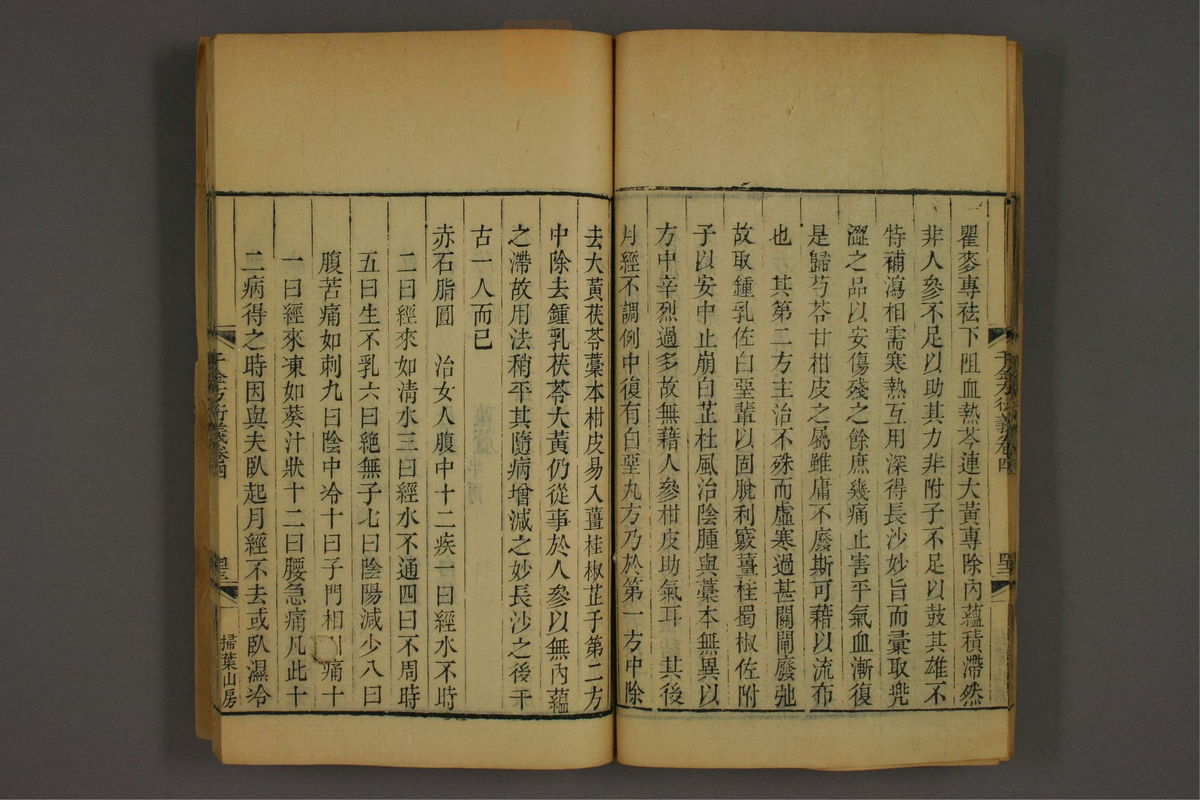 瞿麥專祛下阻血熱芩連大黃專除內蘊積滯然
非人參不足以助其力非附子不足以鼓其雄不
特補瀉相需寒熱互用深得長沙妙旨而彙取兜
澀之品以安傷殘之餘庶幾痛止害平氣血漸復
是歸芍苓甘柑皮之屬雖庸不廢斯可藉以流布
也　其第二方主治不殊而虛寒過甚關閘廢弛
故取鍾乳佐白堊輩以固脫利竅薑桂蜀椒佐附
子以安中止崩白芷杜風治陰腫與藁本無異以
方中辛烈過多故無藉人參柑皮助氣耳　其後
月經不調例中復有白堊丸方乃於第一方中除
千金方衍義卷四
聖
去大黃茯苓藁本柑皮易入薑桂椒芷于第二方
中除去鍾乳茯苓大黃仍從事於人參以無內蘊
之滯故用法稍平其隨病增減之妙長沙之後千
古一人而已
赤石脂圓　治女人腹中十二疾一曰經水不時
二曰經來如清水三曰經水不通四曰不周時
五曰生不乳六曰絕無子七曰陰陽減少八曰
腹苦痛如刺九曰陰中冷十曰子門相痛十
一曰經來凍如葵汁狀十二曰腰急痛凡此十
二病得之時因與夫臥起月經不去或臥濕冷
千金方衍義卷四
掃葉山房